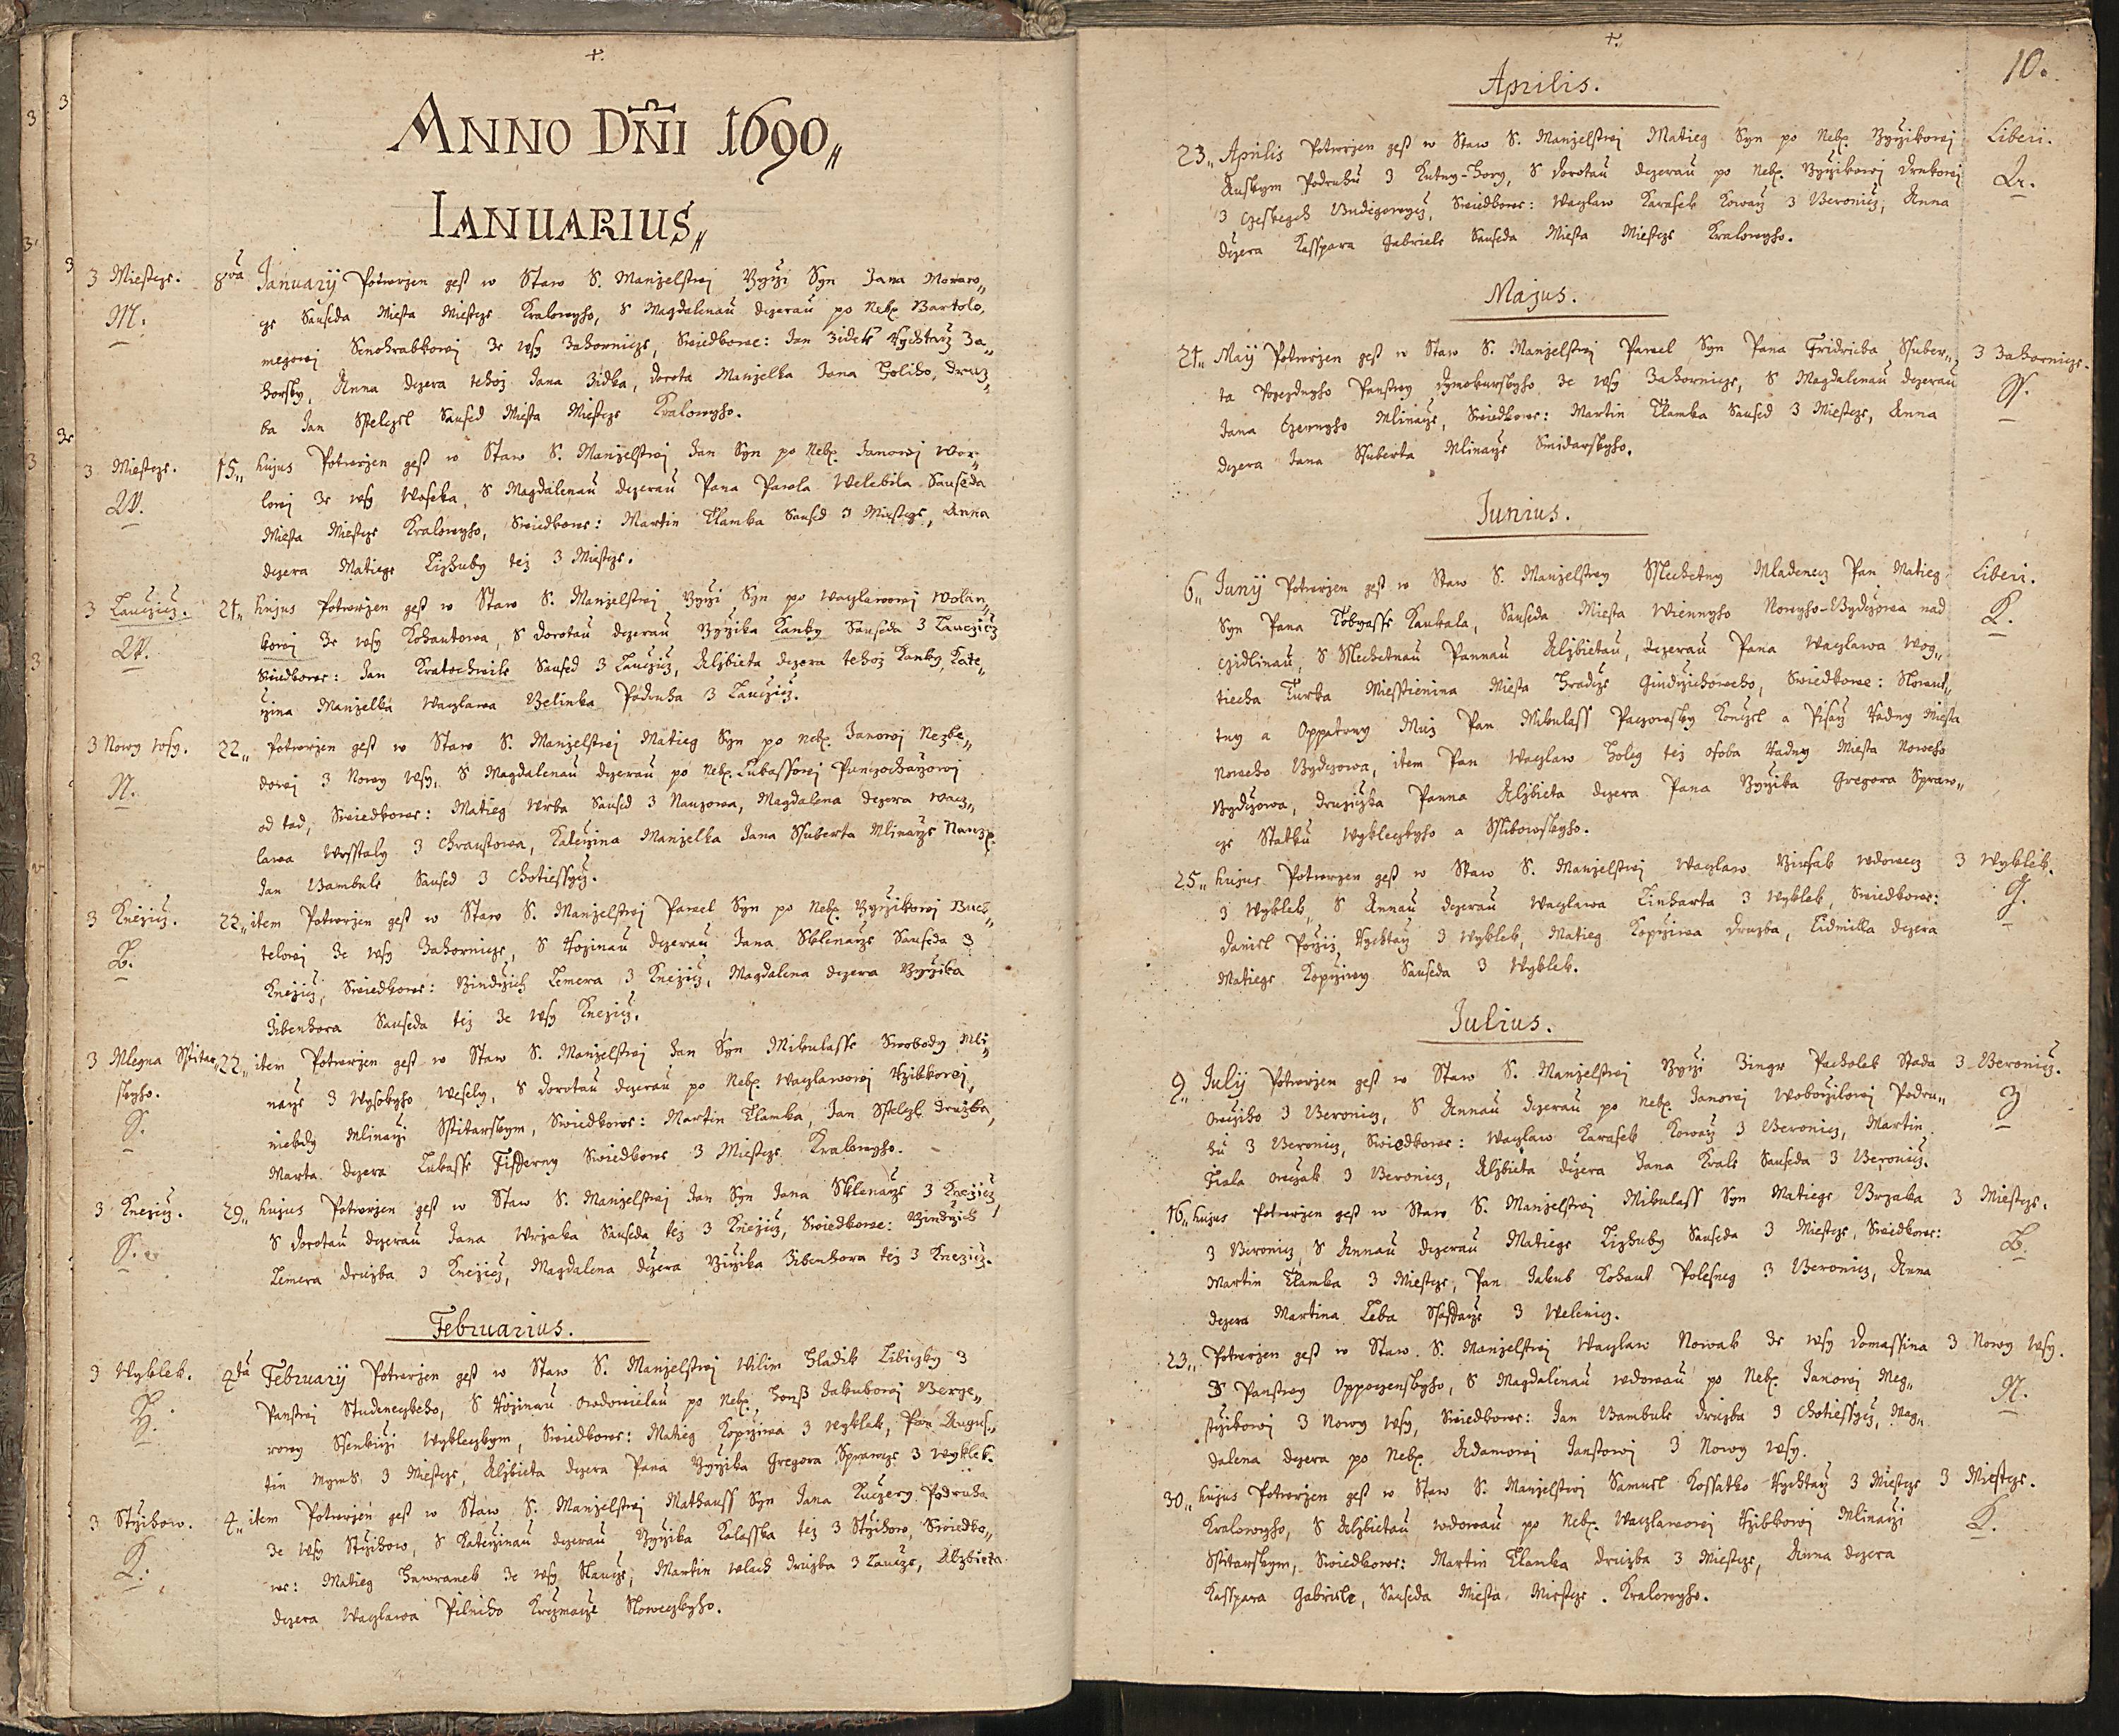 +.
ANNO DÑI 1690„
IANUARIUS„
3 Miestcze.
M.
8va Januarij Potwrzen gest w Staw S. Manzelstwj Girzi Syn Jana Moraw„
cze Sauseda Miesta Miestcze Kralowyho, S Magdalenau dczerau po Neb. Bartolo„
megowj Senohrabkowj Ze wsy Zahornicze, Swiedkowe: Jan Zidek Rychtarz Za„
horsky, Anna dczera tehoz Jana Zidka, dorota Manzelka Jana Holiho, druz„
ba Jan Spelczl Saused Miesta Miestcze Kralowyho.
3 Miestcze.
W.
15„ hujus Potwrzen gest w Staw S. Manzelstwj Jan Syn po Neb. Janowj Wor„
lowj Ze wsy Woseka, S Magdalenau dczerau Pana Pawla Welebila Sauseda
Miesta Miestcze Kralowyho, Swiedkowe: Martin Tlamka Saused 3 Miestcze, Anna
dczera Matiege Lizhuby tez 3 Miestcze.
3 Lauczicz.
W.
21„ hujus Potwrzen gest w Staw S. Manzelstwj Girzi Syn po Waczlawowj Wolan„
kowj Ze wsy Kohautowa, S dorotau dczerau Girzika Kanky Sauseda 3 Lauczicz
Swiedkowe: Jan Kratochwile Saused 3 Lauczicz, Alzbieta dczera tehoz Kanky, Kate„
rzina Manzelka Waczlawa Belinka Podruha 3 Lauczicz.
3 Nowy Wsy.
N.
22„ Potwrzen gest w Staw S. Manzelstwj Matieg Syn po neb. Janowj Nezbe„
dowj 3 Nowy Wsy, S Magdalenau dczerau po Neb. Lukassowj Punczocharzowj
od tad, Swiedkowe: Matieg Wrba Saused 3 Nauzowa, Magdalena dczera Wacz„
lawa Wrstaly 3 Chraustowa, Katerzina Manzelka Jana Ssuberta Mlinarze Nauz.
Jan Bambule Saused 3 Chotiessycz.
3 Kneziez.
B.
22„ item Potwrzen gest w Staw S. Manzelstwj Pawel Syn po Neb. Girzikowj Buch„
telowj Ze wsy Zahornicze, S Rozinau dczerau Jana Sklenarze Sauseda 3
Knezicz, Swiedkowe: Gindrzich Lemera 3 Knezicz, Magdalena dczera Girzika
Zibenhora Sauseda tez Ze wsy Knezicz.
3 Mlegna Sstitar„
skyho.
S.
22„ item Potwrzen gest w Staw S. Manzelstwj Jan Syn Mikulasse Swobody Mli„
narze 3 Wysokyho Wesely, S dorotau dczerau po Neb. Waczlawowj Rzibkowj,
niekdy Mlinarzi Sstitarskym, Swiedkowe: Martin Tlamka, Jan Spelczl druzba,
Marta dczera Lukasse Fisserny Swiedkowe 3 Miestcze Kralowyho.
3 Knezicz.
S.
29„ hujus Potwrzen gest w Staw S. Manzelstwj Jan Syn Jana Sklenarze 3 Knezicz,
S dorotau dczerau Jana Wrzaka Sauseda tez 3 Knezicz, Swiedkowe: Gindrzich
Lemera druzba 3 Knezicz, Magdalena dczera Girzika Zibenhora tez 3 Knezicz.
Februarius.
3 Wyklek.
H.
4ta Februarij Potwrzen gest w Staw S. Manzelstwj Wilim Hladik Libiczky 3
Panstwj Studeneczkeho, S Rozinau owdowielau po Neb. Jakubowj Berge„
rowy Ssenkirzi Wykleczkym, Swiedkowe: Matieg Koprziwa 3 Wyklek, Pan Augus„
tin 3 Miestcze, Alzbieta dczera Pana Girzika Gregora Sprawcze 3 Wyklek.
3 Strzihow.
K.
4„ item Potwrzen gest w Staw S. Manzelstwj Mathauss Syn Jana Kuczery Podruha
Ze wsy Strzihow, S Katerzinau dczerau Girzika Kalasska tez 3 Strzihow, Swiedko„
we: Matieg Hawranek Ze wsy Slaucze, Martin Wlach druzba 3 Laucze, Alzbieta
dczera Waczlawa Pilniho Krczmarze Noweczkyho.
+.
10.
Aprilis.
23„ Aprilis Potwrzen gest w Staw S. Manzelstwj Matieg Syn po Neb. Girzikowj
Auskym Podruhu 3 Kutny-Hory, S dorotau dczerau po Neb. Girzikowj drnkowj
3 Czeskych Budiegowycz, Swiedkowe: Waczlaw Karasek Kowarz 3 Beronicz, Anna
dczera Kasspara Gabriele Sauseda Miesta Miestcze Kralowyho.
Liberi.
A.
Majus.
21„ Maij Potwrzen gest w Staw S. Manzelstwj Pawel Syn Pana Fridricha Ssuber„
ta Panstwy dymokurskyho Ze wsy Zahornicze, S Magdalenau dczerau
Jana Czernyho Mlinarze, Swiedkowe: Martin Tlamka Saused 3 Miestcze, Anna
dczera Jana Ssuberta Mlinarze Smidarskyho.
3 Zahornicze.
Ss.
Junius.
6„ Junij Potwrzen gest w Staw S. Manzelstwy Sslechetny Mladenecz Pan Matieg
Syn Pana Tobyasse Kaukala, Sauseda Miesta Wiennyho Nowyho-Bydczowa nad
Czidlinau, S Sslechetnau Pannau Alzbietau, dczerau Pana Waczlawa Wog„
tiecha Turka Miesstienina Miesta Hradcze Gindrzichoweho, Swiedkowe: Slowut„
ny a Oppatrny Muz Pan Mikulass Paczowsky Konczel a Pisarz Radny Miesta
Noweho Bydczowa, item Pan Waczlaw Holeg tez osoba Radny Miesta Noweho
Bydczowa, druziczka Panna Alzbieta dczera Pana Girzika Gregora Spraw„
cze Statku Wykleczkyho a Sslibowskyho.
Liberi.
K.
25„ hujus Potwrzen gest w Staw S. Manzelstwj Waczlaw Girsak wdowecz
3 Wyklek, S Annau dczerau Waczlawa Linharta 3 Wyklek, Swiedkowe:
daniel Rychtarz 3 Wyklek, Matieg Koprziwa druzba, Lidmilla dczera
Matiege Koprziwy Sauseda 3 Wyklek.
3 Wyklek.
G.
Julius.
9„ Julij Potwrzen gest w Staw S. Manzelstwj Girzi Zingr Pacholek Stada
owczyho 3 Beronicz, S Annau dczerau po neb. Janowj Woborzilowj Podru„
hu 3 Beronicz, Swiedkowe: Waczlaw Karasek Kowarz 3 Beronicz, Martin
Fiala owczak 3 Beronicz, Alzbieta dczera Jana Krale Sauseda 3 Beronicz.
3 Beronicz.
Z
16„ hujus Potwrzen gest w Staw S. Manzelstwj Mikulass Syn Matiege Brzaka
3 Beronicz, S Annau dczerau Matiege Lizhuby Sauseda 3 Miestcze, Swiedkowe:
Martin Tlamka 3 Miestcze, Pan Jakub Kohaut Polesneg 3 Beronicz, Anna
dczera Martina Leba Ssaffarze 3 Welenicz.
3 Miestcze.
B.
23„ Potwrzen gest w Staw S. Manzelstwj Waczlaw Nowak Ze wsy domassina
S Panstwy Oppoczenskyho, S Magdalenau wdowau po Neb. Janowj Meg„
strzikowj 3 Nowy Wsy, Swiedkowe: Jan Bambule druzba 3 Chotiessycz, Mag„
dalena dczera po Neb. Adamowj Janstowj 3 Nowy Wsy.
3 Nowy Wsy.
N.
30„ hujus Potwrzen gest w Staw S. Manzelstwj Samuel Kossatko Rychtarz 3 Miestcze
Kralowyho, S Alzbietau wdowau po Neb. Waczlawowj Rzibkowj Mlinarzi
Sstitarskym, Swiedkowe: Martin Tlamka druzba 3 Miestcze, Anna dczera
Kasspara Gabriele, Sauseda Miesta Miestcze Kralowyho.
3 Miestcze.
K.